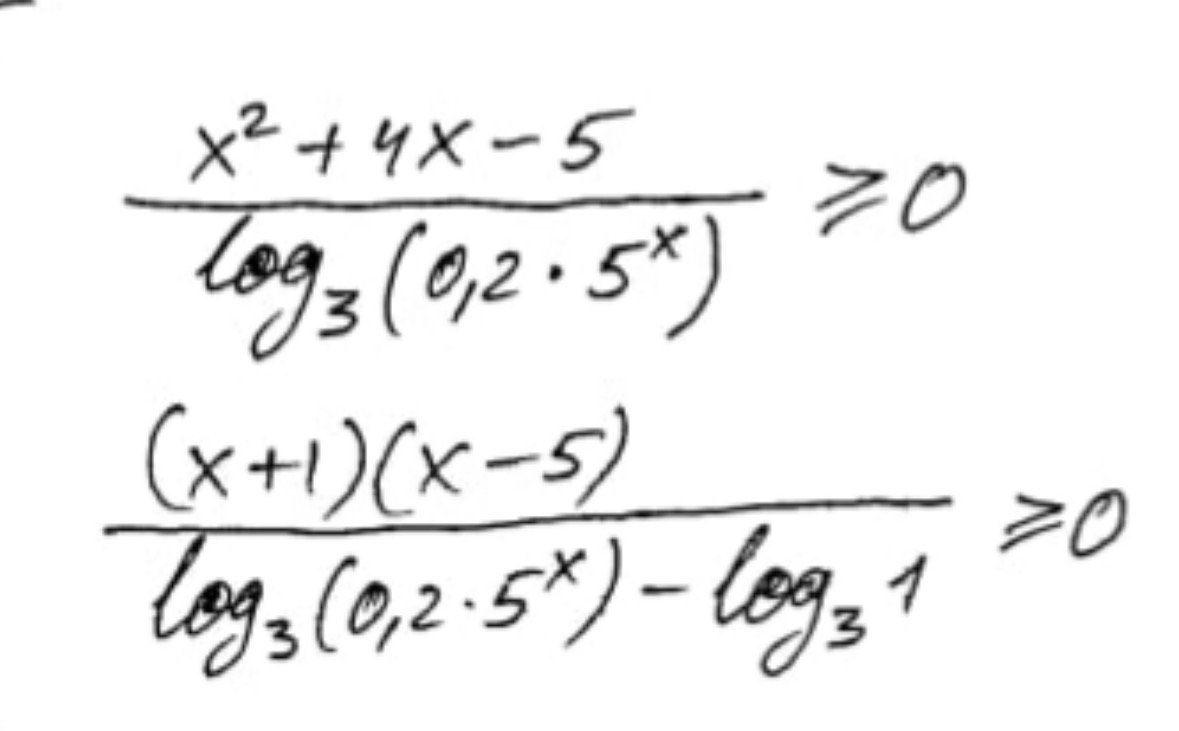 \frac{x^2+4x-5}{\log_3(0,2\cdot 5^x)} \geqslant 0
\frac{(x+1)(x-5)}{\log_3(0,2\cdot 5^x)-\log_3 1} \geqslant 0